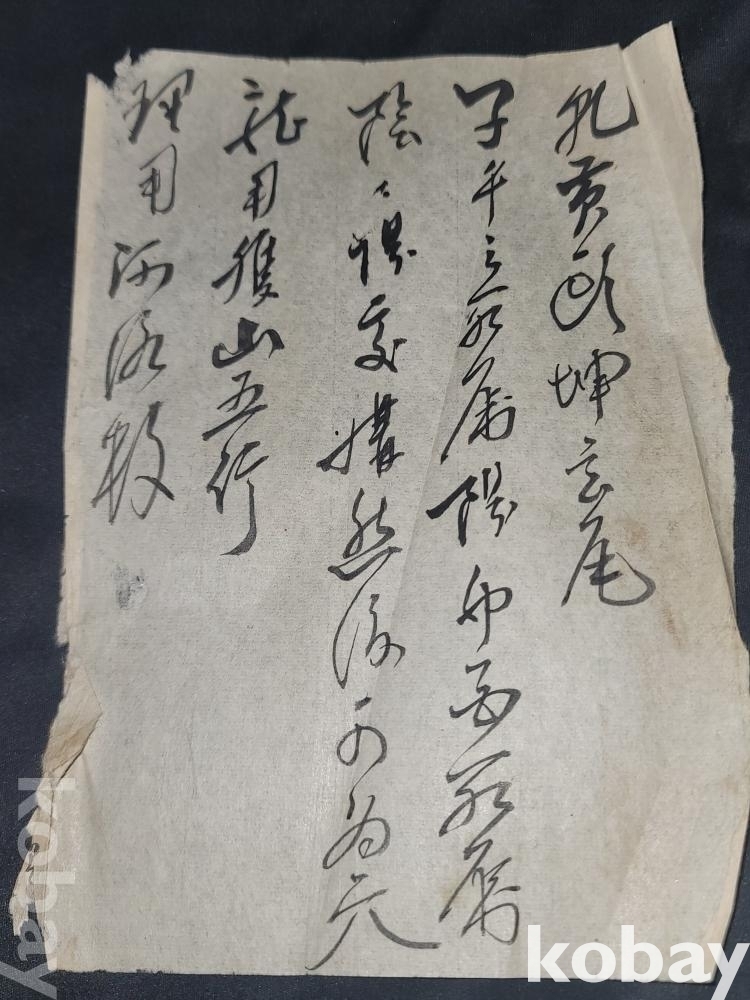 乾頭坤尾
子午之所屬陽卯酉所屬
陰〻陽交搆然後可为穴
龍用雙山五行
理用河洛數
kobay
kobay